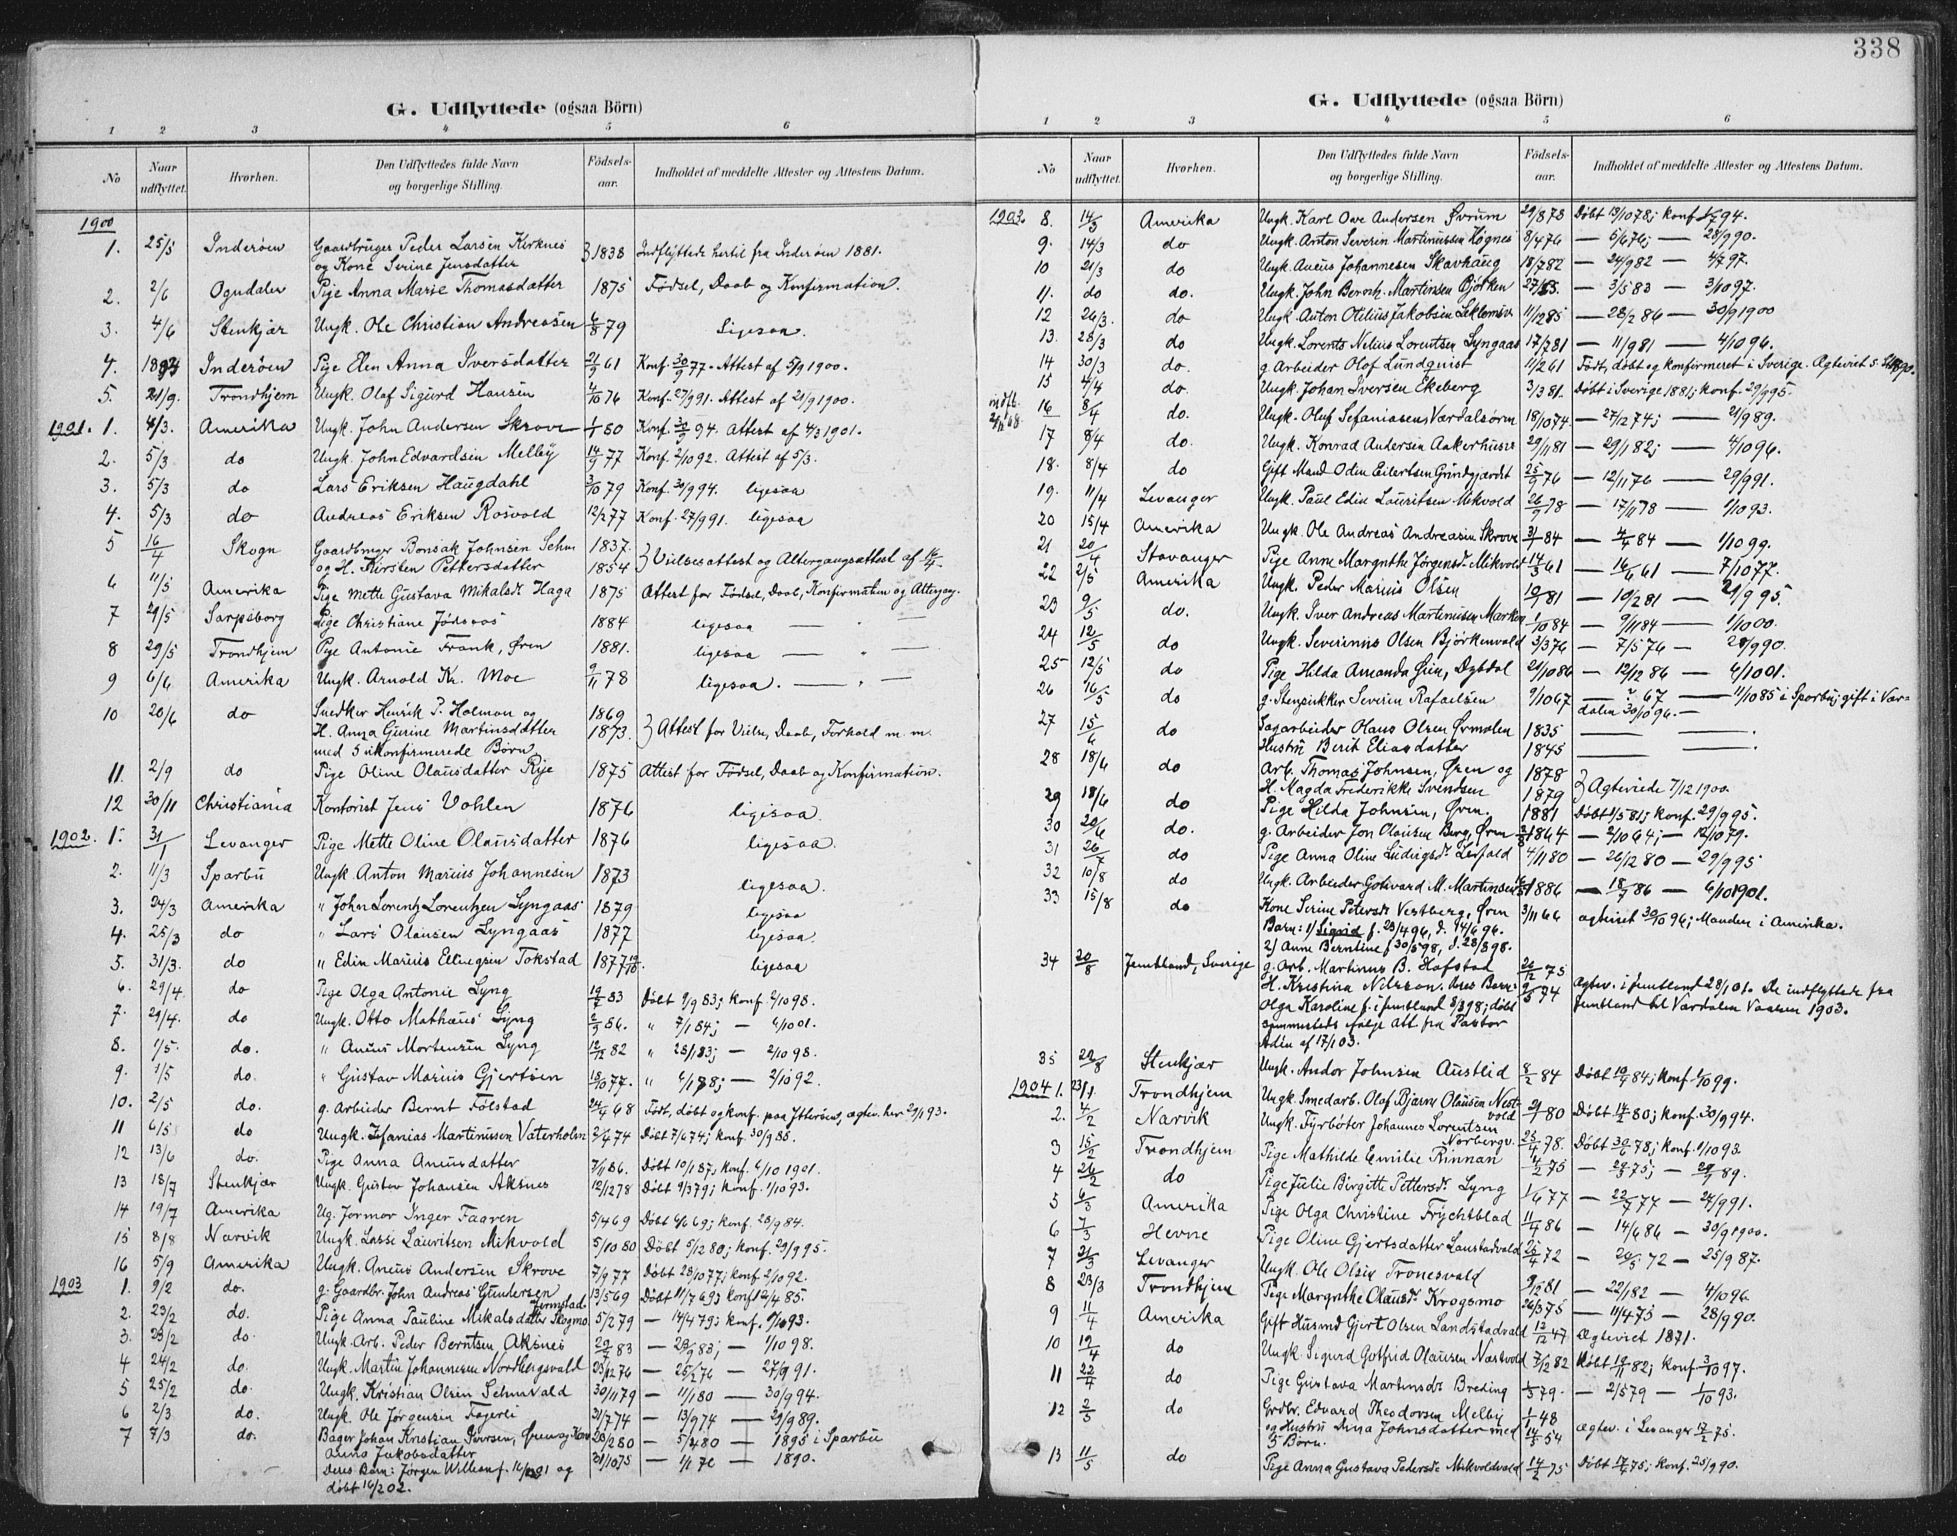 338
G. Udflyttede (ogsaa Börn)
1 2 3 4 5 6
No Naar udflyttet. Hvorhen. Den Udflyttedes fulde Navn og borgerlige Stilling. Födsels-aar. Indholdet af meddelte Attester og Attestens Datum.
1900
1. 25/5 Inderøen Gaardbruger Peder Larsen Kirknes } 1838 Indflyttede hertil fra Inderøen 1881.
og Kone Serine Jensdatter
2. 2/6 Ogndalen Pige Anna Marie Thomasdatter 1875 Fødsel, Daab og Konfirmation.
3. 4/6 Stenkjær Ungk. Ole Christian Andreasen 6/8 79 ligesaa.
4. Inderøen Pige Elen Anna Iversdatter 61 Konf. 30/9 77. Attest af 5/9 1900.
5. 21/9. Trondhjem Ungk. Olaf Sigurd Hansen 4/10 76 Konf. 27/9 91. Attest af 21/9 1900.
1901. 1. 4/3. Amerika Ungk. John Andersen Skrove 80 Konf. 30/9 94. Attest af 4/3 1901.
2. 5/3 do Ungk. John Edvardsen Melby 14/9 77 Konf. 2/10 92. Attest af 5/3.
3. 5/3 do Lars Eriksen Haugdahl 3/10 79 Konf. 30/9 94. ligesaa
4. 5/3 do Andreas Eriksen Rosvold 12/2 77 Konf. 27/9 91. ligesaa
5 16/4 Skogn Gaardbruger Bonsak Johnsen 1837.
og H. Kirsten Pettersdatter 1854 } Vielsesattest og Altergangsattest af 16/4.
6 11/5 Amerika Pige Mette Gustava Mikalsdt Haga 1875 Attest for Fødsel, Daab, Konfirmation og Altergang.
7 29/5 Sarpsborg Pige Christiane Jødsaas 1884 ligesaa — " —
8 29/5 Trondhjem Pige Antonie Frank, Øren 1881. ligesaa — " —
9 6/6 Amerika Ungk. Arnold Kr. Moe 9/11 78 ligesaa. — " —
10 20/6 do Snedker Henrik P. Holman og 1869
H. Anna Gurine Martinsdatter 1873. } Attest for Vielse, Daab, Forhold m. m.
med 5 ukonfirmerede Børn.
11. 2/9 do Pige Oline Olausdatter Rye 1875 Attest for Fødsel, Daab og Konfirmation.
12 30/11 Christiania Kontorist Jens Vohlen 1876 ligesaa.
1902. 1. 31/1 Levanger Pige Mette Oline Olausdatter 1876 ligesaa.
2. 11/3 Sparbu Ungk Anton Marius Johannesen 1873 ligesaa.
3. 24/3 Amerika " John Lorentz Lorentzen Lyngaas 1879 ligesaa
4. 25/3 do " Lars Olausen Lyngaas 1877 ligesaa.
5. 31/3. do " Edin Marius Ellingsen Tokstad 1877 ligesaa
6. 29/4. do Pige Olga Antonie Lyng 83 Døbt 9/9 83; konf. 2/10 98.
7. 29/4. do Ungk. Otto Mathæus Lyng Konf. 6/10 01.
8. 1/5. do. " Aneus Mortensen Lyng 12/12 82 " 28/1 83; — 2/10 98.
9. 1/5 do. " Gustav Marius Gjertsen 18/10 77. " 6/1 78; — 2/10 92.
10. 2/5 do. g. Arbeider Bernt Følstad 24/9 68 Født, døbt og konf. paa Ytterøen, ægtev. her 2/11 93.
11 6/5 do Ungk. Sefanias Martinusen Vaterholm 2/4 74 Døbt 7/6 74; konf. 30/9 88.
12 13/6 do. Pige Anna Aneusdatter 7/11 86. Døbt 10/1 87; konf. 6/10 1901.
13 18/7 Stenkjær Ungk. Gustav Johansen Aksnes 12/12 78 Døbt 9/3 79; konf. 1/10 93.
14 19/7 Amerika Ug. Jormor Inger Faaren 5/4 69 Døbt 6/6 69; konf. 28/9 84.
15 8/8 Narvik Ungk. Lasse Lauritsen Mikvold 5/10 80 Døbt 5/12 80; konf. 29/9 95.
16 5/9 Amerika Ungk. Aneus Andersen Skrove 7/9 77 Døbt 28/10 77; konf. 2/10 92.
1903 1. 9/2 do. g. Gaardbr. John Andreas Gundersen 13/5 69 Døbt 11/7 69; konf 12/4 85.
2. 23/2 do. Pige Anna Pauline Mikalsdatter Skogmo 5/2 79 — 14/4 79; konf. 1/10 93.
3. 23/2 do. Ungk. Arb. Peder Berntsen Aksnes 22/7 83 — 83; — 2/10 98.
4 24/2 do. Ungk. Martin Johannesen Nordbergsvald 23/12 76 — 25/2 76 — 27/9 91.
5 25/2 do. Ungk. Kristian Olsen 30/11 79 — 11/1 80 — 30/9 94.
6 2/3 do. Ungk. Ole Jørgensen Fagerli 31/7 74 — 13/9 74 — 29/9 89.
7 7/3 do. Bager Johan Kristian Iversen, Øren og Kone 23/2 80 — 5/4 80 — 1895 i Sparbu
Anna Jakobsdatter 21/10 75 — — 1890.
Deres Barn: Jørgen William f. og
døbt 16/2 02.
G. Udflyttede (ogsaa Börn)
1 2 3 4 5 6
No Naar udflyttet. Hvorhen. Den Udflyttedes fulde Navn og borgerlige Stilling. Födsels-aar. Indholdet af meddelte Attester og Attestens Datum.
1903. 8. 14/3 Amerika Ungk. Karl Ove Andersen Øvrum 29/8 78 Døbt 19/10 78; konf. 94.
9. 14/3 do Ungk. Anton Severin Martinussen Høgnes 8/4 76 — 5/6 76; — 28/9 90.
10 21/3 do Ungk. Aneus Johannesen Skavhaug 18/7 82 — 24/9 82 — 4/7 97.
11. do do. Ungk. John Bernh. Martinsen Bjørken — 3/5 83 — 3/10 97.
12 26/3. do Ungk. Anton Otilius Jakobsen 11/12 85 — 28/2 86 — 30/9 1900
13. 28/3 do Ungk. Lorents Nelius Lorentsen Lyngaas 17/7 81 — 11/9 81 — 4/10 96.
14 30/3 do g. Arbeider Olof Lundquist 11/2 61 Født, døbt og konfirmeret i Sverige. Ægteviet
15 4/4 do. Ungk. Johan Iversen Ekeberg 3/3 81. Døbt i Sverige 1881; konf. 29/9 95.
indfl.
16 8/4 do. Ungk. Oluf Sefaniasen, Værdalsøren 18/10 74 — 27/12 74; — 29/9 89.
17 8/4 do. Ungk. Konrad Andersen Aakerhus 29/11 81 — 29/1 82; — 4/10 96.
18. 8/4 do Gift Mand Oden Eilertsen Grundgjærdt 25/9 76 — 12/11 76 — 29/9 91.
19. 11/4 Levanger Ungk. Paul Edin Lauritsen Mikvold 26/9 78 — 17/11 78 — 1/10 93.
20 15/4 Amerika Ungk. Ole Andreas Andreasen Skrove 3/1 84 — 84 — 1/10 99.
21 20/4 Stavanger Pige Anne Margrethe Jørgensdt. Mikvold 14/3 61 — 61 — 7/10 77.
22 2/5 Amerika Ungk. Peder Marius Olsen 81 — 19/2 81 — 29/9 95.
23 9/5 do. Ungk. Iver Andreas Martinusen Marken 1/10 84 — 9/11 84 — 1/10 00.
24 12/5 do Ungk. Severinus Olsen Bjørkenvald 3/3 76 — 7/5 76 — 28/9 90.
25 12/5 do Pige Hilda Amanda Øien, Dybdal 21/10 86 — 12/12 86 — 6/10 01.
26 16/5 do g. Stenpikker Severin Rafaelsen 9/10 67 — ? 67 — 11/10 85 i Sparbu, gift i Vær-
dalen 30/10 96. —
27 15/6 do Sagarbeider Claus Olsen Ørmelen 1835
Hustru Berit Eliasdatter 1845
28 18/6 do Arb. Thomas Johnsen, Øren og 1878
H. Magda Frederikke Svendsen 1879 } Ægteviede 7/12 1900.
29 18/6 do Pige Hilda Johnsen, Øren. 1881 Døbt 1/5 81; konf. 29/9 95.
30 20/6 do. g. Arbeider Jon Olausen Berg, Øren 1864 — 2/10 64; — 12/10 79.
31 26/7 do Pige Anna Oline Ludvigsdt. Leifald 4/11 80 — 26/12 80 — 29/9 95
32 10/8 do Ungk. Arbeider Gotvard M. Martinsen 1886 — 18/7 86 — 6/10 1901.
33 15/8 do Kone Serine Petersdt Vestberg, Øren 3/11 66 ægteviet 30/10 96; Manden i Amerika.
Barn: 1) Sigrid f. 23/4 96, d. 14/6 96.
2) Anne Berntine f. 30/5 98, d. 28/8 98.
34 20/8 Jemtland, Sverige g. Arb. Martinus B. Hofstad 26/12 75
H. Kristina Nilsson. Deres Barn: 9/5 74 Ægtev. i Jemtland 28/1 01. De indflyttede fra
Olga Karoline f. i Jemtland 8/3 98; døbt Jemtland til Værdalen Vaaren 1903.
sammesteds ifølge Att fra Pastor
Adén af 17/1 03.
35 22/8 Stenkjær Ungk. Andor Johnsen Austlid 8/2 84 Døbt 84; konf. 1/10 99.
1904 1. 23/1. Trondhjem Ungk. Smedarb. Olaf Bjarne Olausen Nest-
vold 80 Døbt 80; konf. 30/9 94.
2. 4/2 Narvik Ungk. Fyrbøter Johannes Lorentsen
Norberg 23/4 78. Døbt 30/6 78; konf. 1/10 93.
3 15/2 Trondhjem Pige Mathilde Emilie Rinnan 75 — 75; — 29/9 89.
4 26/2 do Pige Julie Birgitte Pettersdt. Lyng 1/6 77 — 22/7 77 — 27/9 91.
5 6/3 Amerika Pige Olga Christine Frychtblad 11/4 86 — 14/6 86 — 30/9 1900.
6 7/3 Hevne Pige Oline Gjertsdatter Landstadvald 25/4 72 — 26/5 72 — 25/9 87.
7 21/3 Levanger Ungk. Ole Olsen Tronesvald 9/12 81 — 22/1 82 — 4/10 96.
8 23/3 Trondhjem Pige Margrethe Olausdt. Krogsmo 26/3 75 — 11/4 75 — 28/9 90.
9 11/4 Amerika Gift Husmd Gjert Olsen Landstadvald 12/12 47 Ægteviet 1871.
10 19/4 do Ungk. Sigurd Gotfrid Olausen Næstvold 7/12 82 Døbt 82; konf. 3/10 97.
11 22/4 do Pige Gustava Martinsdt Breding 1/3 79. — 2/5 79 — 1/10 93.
12 2/5 do Grdbr. Edvard Theodorsen Melby 1/1 48
og Hustru Dina Johnsdatter med 14/5 54 Ægtev. i Levanger 17/2 75.
5 Børn.
13 11/5 do Pige Anna Gustava Pedersdt Mikvoldvald 14/2 75 Døbt 75; konf. 25/9 90.